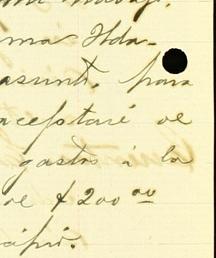 ma Hda-
asunto, para
aceptaré de
gastos á la
de $200 00